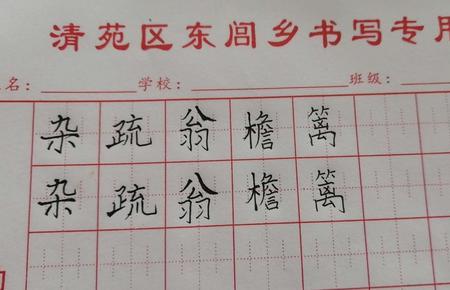 清苑区东闾乡书写专用
名：学校：班级：
杂疏翁檐篱
杂疏翁檐篱